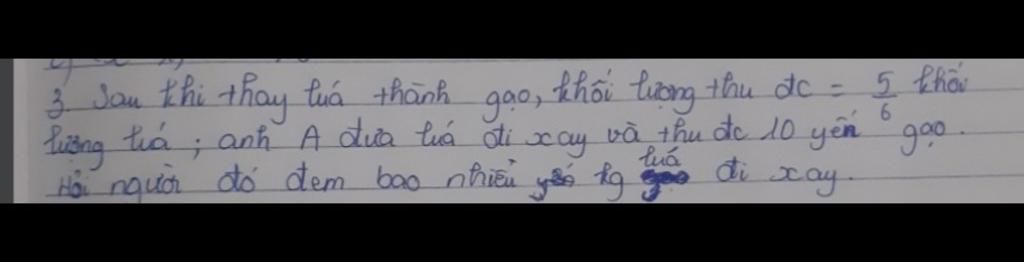 3. Sau khi thay luá thành gạo, khối lượng thu đc = 5/6 khối
lượng luá ; anh A đưa luá đi xay và thu đc 10 yến gạo.
Hỏi người đó đem bao nhiêu kg luá đi xay.